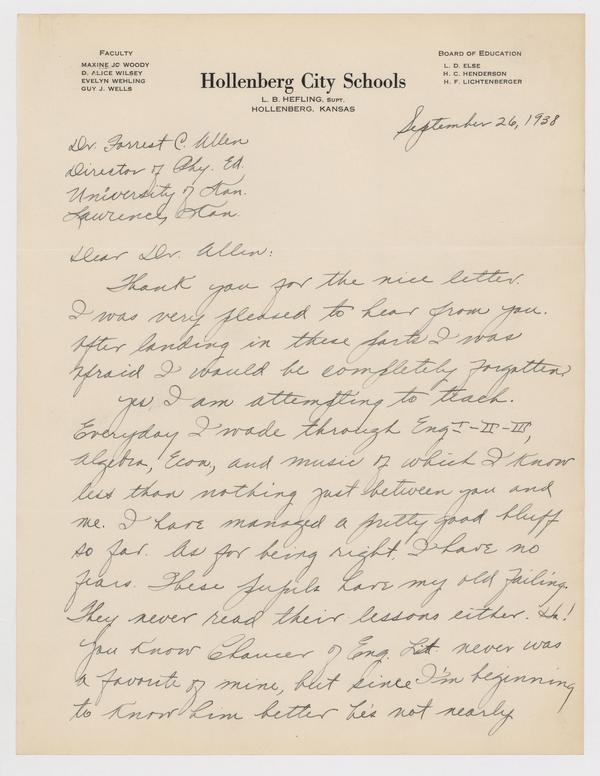 Faculty
MAXINE JO WOODY
D. ALICE WILSEY
EVELYN WEHLING
GUY J. WELLS
Board of Education
L. D. ELSE
H. C. HENDERSON
H. F. LICHTENBERGER
Hollenberg City Schools
L. B. HEFLING, SUPT.
HOLLENBERG, KANSAS
September 26, 1938
Dr. Forrest C. Allen
Director of Phy. Ed.
University of Kan.
Lawrence, Kan.
Dear Dr. Allen:
Thank you for the nice letter.
I was very pleased to hear from you.
After landing in these parts I was
afraid I would be completely forgotten.
Yes, I am attempting to teach.
Everyday I wade through Eng I-II-III,
Algebra, Econ, and music of which I know
less than nothing just between you and
me. I have managed a pretty good bluff
so far. As for being right, I have no
fears. These pupils have my old failing.
They never read their lessons either. Ha!
You know Chaucer of Eng. Lit. never was
a favorite of mine, but since I'm beginning
to know him better he's not nearly